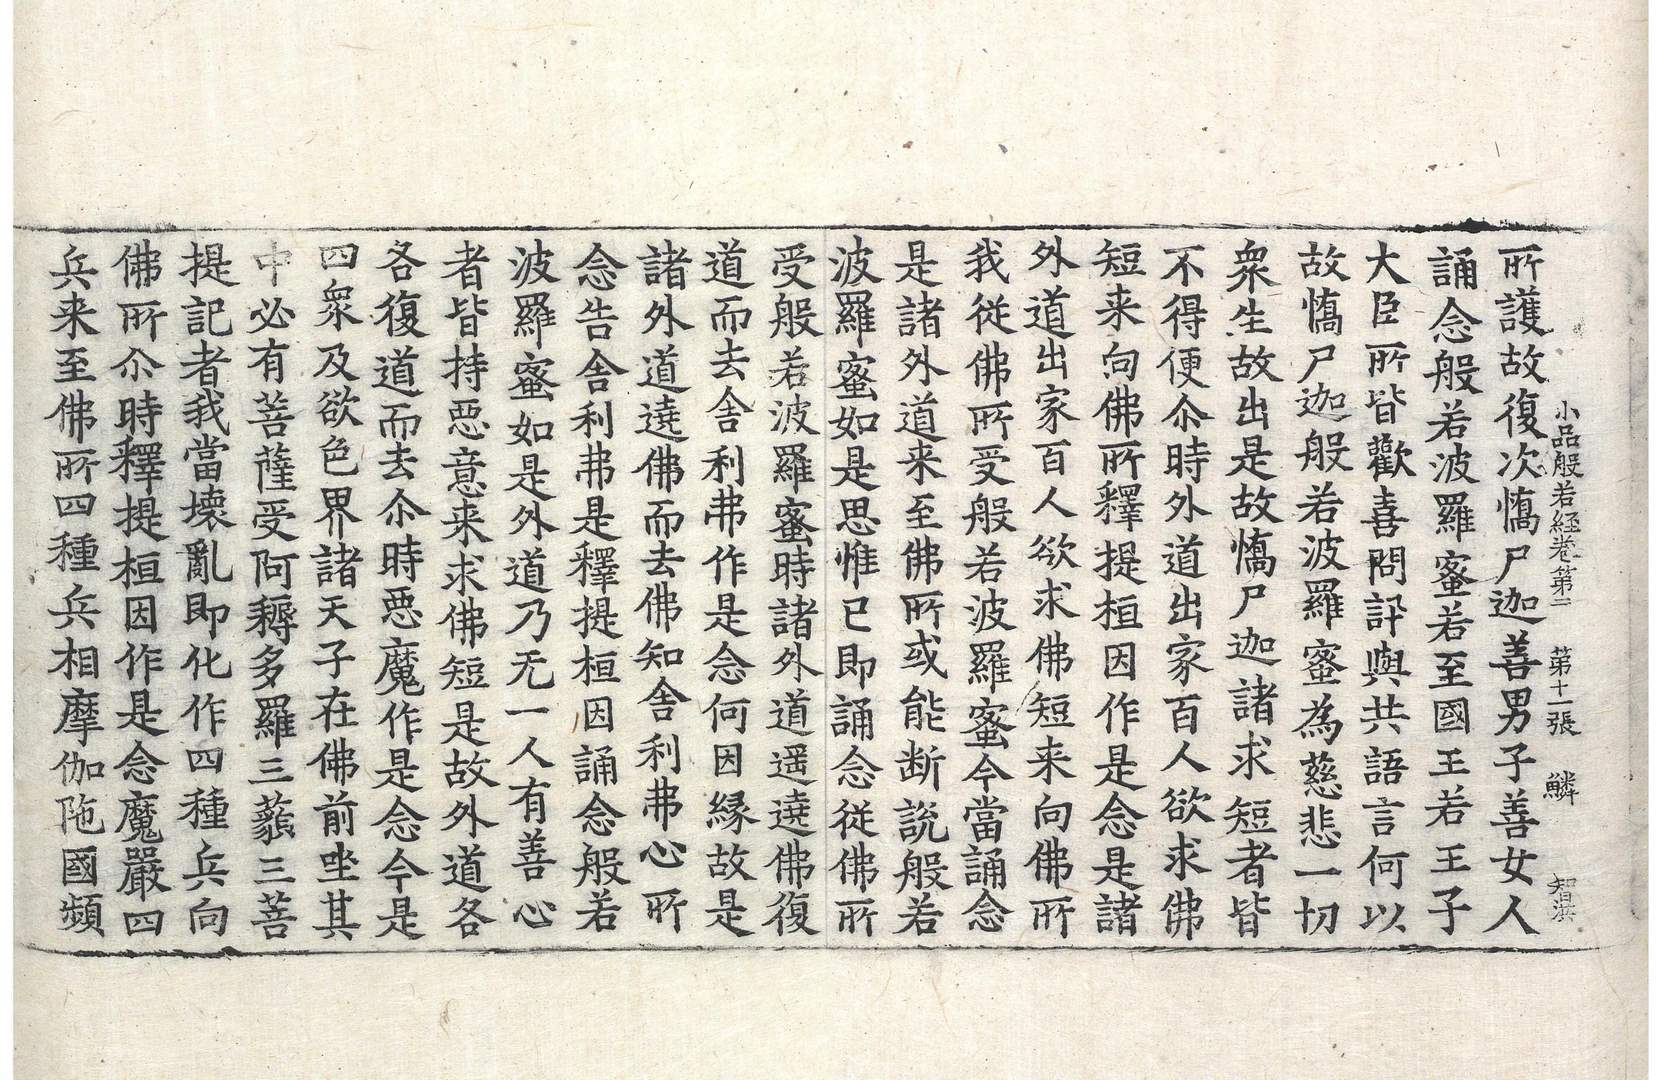 小品般若經卷第二 第十一張 鱗 智洪
所護故復次憍尸迦善男子善女人
誦念般若波羅蜜若至國王若王子
大臣所皆歡喜問訊與共語言何以
故憍尸迦般若波羅蜜為慈悲一切
衆生故出是故憍尸迦諸求短者皆
不得便尒時外道出家百人欲求佛
短来向佛所釋提桓因作是念是諸
外道出家百人欲求佛短来向佛所
我從佛所受般若波羅蜜今當誦念
是諸外道来至佛所或能断說般若
波羅蜜如是思惟已即誦念從佛所
受般若波羅蜜時諸外道遥遶佛復
道而去舍利弗作是念何因縁故是
諸外道遶佛而去佛知舍利弗心所
念告舍利弗是釋提桓因誦念般若
波羅蜜如是外道乃无一人有善心
者皆持惡意来求佛短是故外道各
各復道而去尒時惡魔作是念今是
四衆及欲色界諸天子在佛前坐其
中必有菩薩受阿耨多羅三藐三菩
提記者我當壞亂即化作四種兵向
佛所尒時釋提桓因作是念魔嚴四
兵来至佛所四種兵相摩伽陁國頻